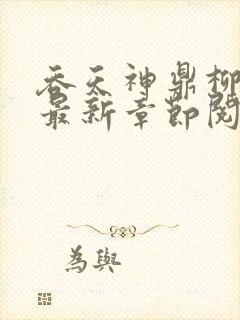 吞天神鼎柳
最新章節閱
為與